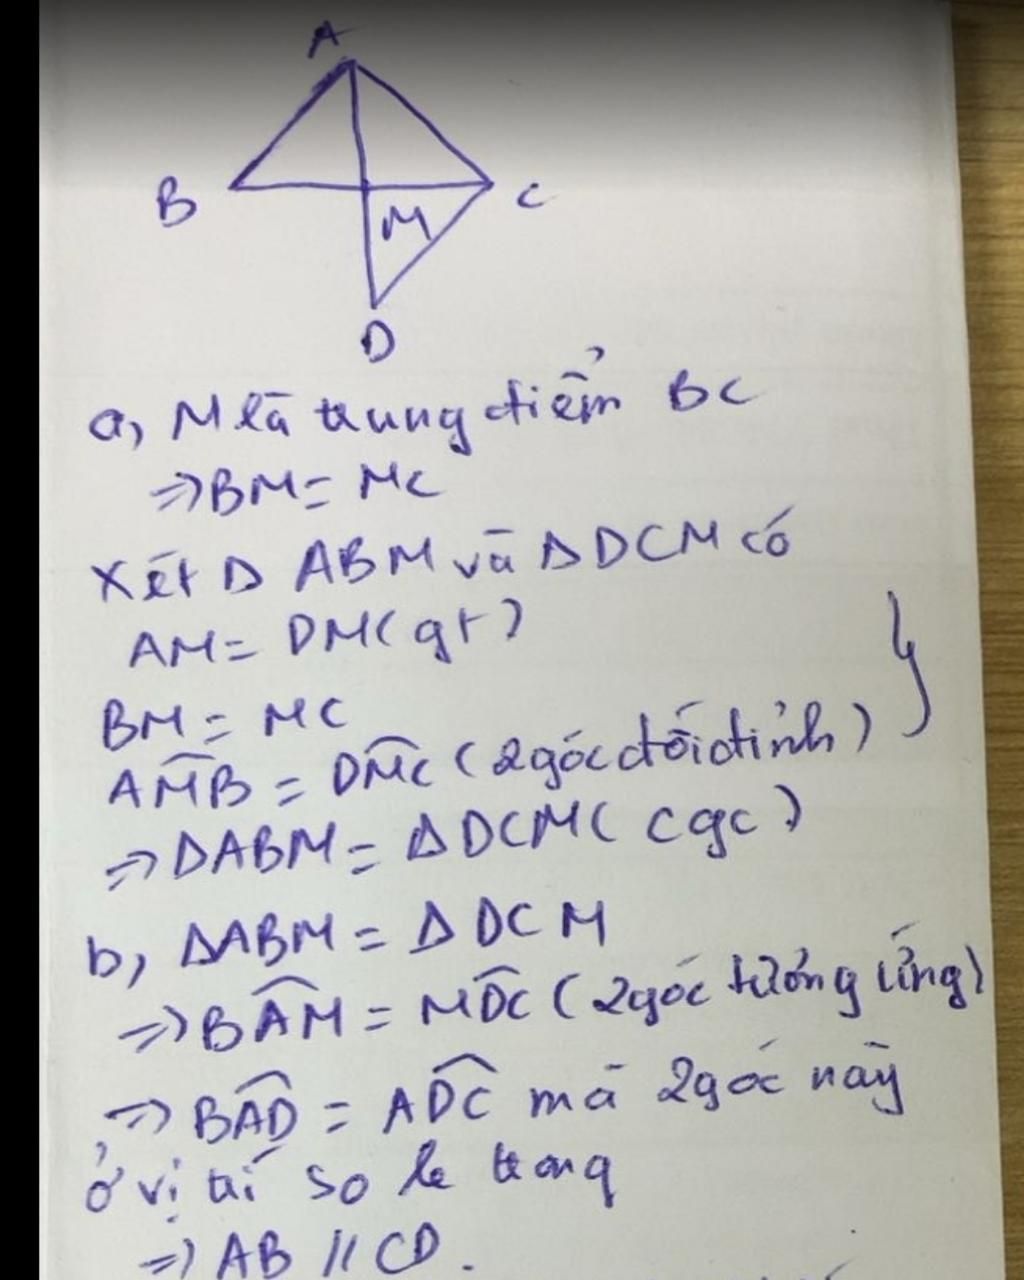 A
B
C
M
D
a, M là trung điểm BC
⇒ BM = MC
Xét Δ ABM và Δ DCM có
AM = DM (gt)
BM = MC
\widehat{AMB} = \widehat{DMC} (2 góc đối đỉnh)
⇒ ΔABM = Δ DCM (cgc)
b, ΔABM = Δ DCM
⇒ \widehat{BAM} = \widehat{MDC} (2 góc tương ứng)
⇒ \widehat{BAD} = \widehat{ADC} mà 2 góc này
ở vị trí so le trong
⇒ AB // CD.